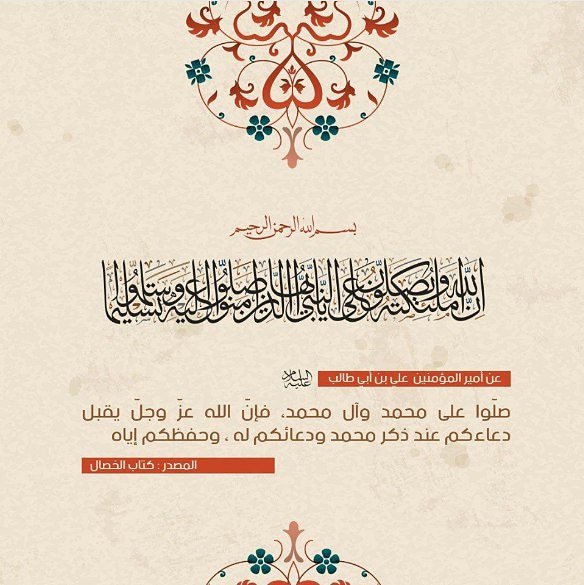 بسم الله الرحمن الرحيم
إن الله وملائكته يصلون على النبي يا أيها الذين آمنوا صلوا عليه وسلموا تسليما
عن أمير المؤمنين علي بن أبي طالب عليه السلام
صلّوا على محمد وآل محمد، فإنّ الله عزّ وجلّ يقبل
دعاءكم عند ذكر محمد ودعائكم له ، وحفظكم إياه
المصدر : كتاب الخصال